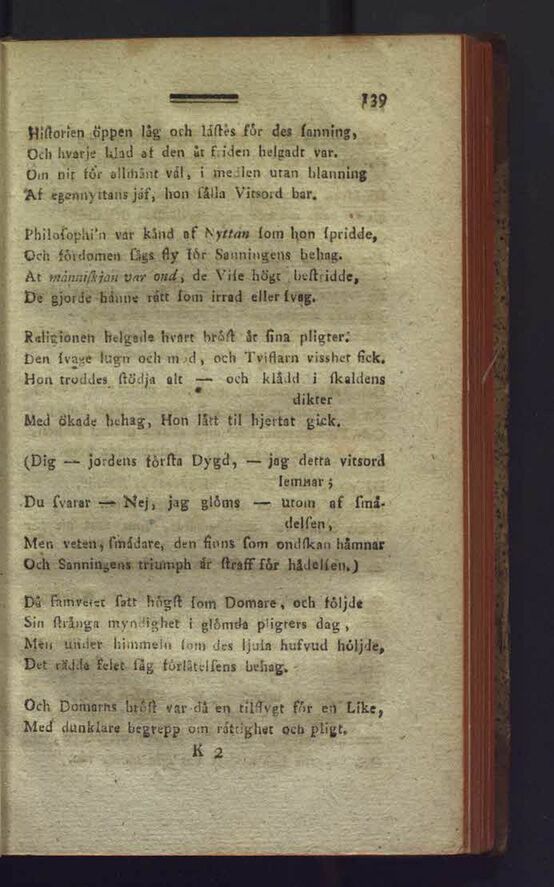 139
Hiſtorien öppen låg och läſtes för des ſanning,
Och hvarje blad af den åt friden helgadt var.
Om nit för allmänt väl, i medlen utan blanning
Af egennyttans jäf, hon ſälla Vitsord bar.
Philoſophi'n var känd af Nyttan ſom hon ſpridde,
Och fördomen ſågs fly för Sanningens behag.
At männiſkjan var ond, de Viſe högt beſtridde,
De gjorde hänne rätt ſom irrad eller ſvag.
Religionen helgade hvart bröſt åt ſina pligter:
Den ſvage lugn och mod, och Tviflarn visshet fick.
Hon troddes ſtödja alt — och klädd i ſkaldens
dikter
Med ökade behag, Hon lätt til hjertat gick.
(Dig — jordens förſta Dygd, — jag detta vitsord
lemnar;
Du ſvarar — Nej, jag glöms — utom af ſmä-
delſen,
Men veten, ſmädare, den finns ſom ondſkan hämnar
Och Sanningens triumph är ſtraff för hädelſen.)
Då ſamvetet ſatt högſt ſom Domare, och följde
Sin ſtränga myndighet i glömda pligters dag,
Men under himmeln ſom des ljuſa hufvud höljde,
Det rädda felet ſåg förlåtelſens behag.
Och Domarns bröſt var då en tilflygt för en Like,
Med dunklare begrepp om rättighet och pligt.
K 2